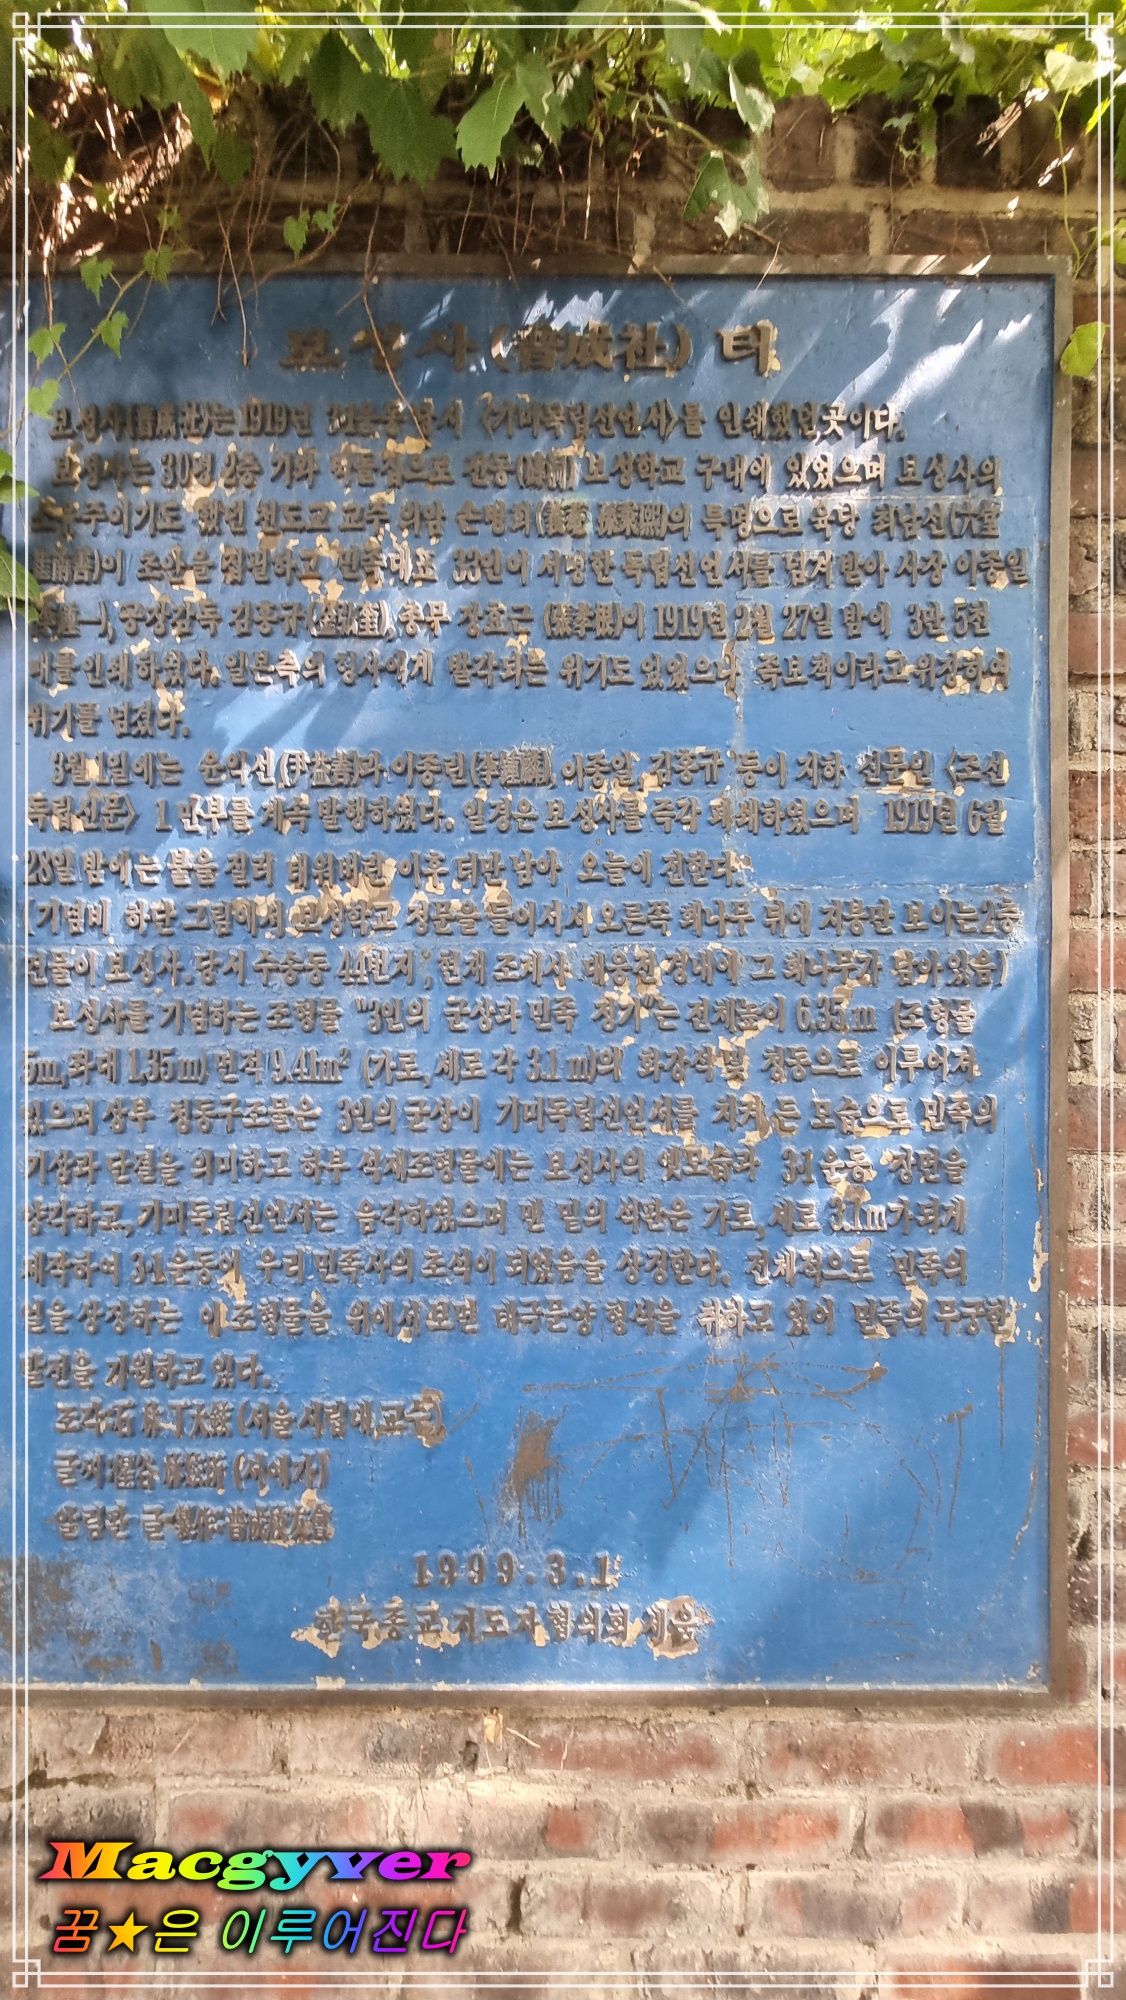 보성사(普成社) 터
보성사(普成社)는 1919년 3·1운동 당시 <기미독립선언서>를 인쇄했던 곳이다.
보성사는 30평 2층 기와 벽돌집으로 전동(磚洞) 보성학교 구내에 있었으며 보성사의
소유주이기도 했던 천도교 교주 의암 손병희(義菴 孫秉熙)의 특명으로 육당 최남선(六堂
崔南善)이 초안을 집필하고 민족대표 33인이 서명한 독립선언서를 넘겨받아 사장 이종일
一), 공장감독 김홍규(金弘奎), 총무 장효근 (張孝根)이 1919년 2월 27일 밤에 3만 5천
매를 인쇄하였다. 일본측의 형사에게 발각되는 위기도 있었으나 족보책이라고 위장하여
위기를 넘겼다.
3월 1일에는 윤익선(尹益善)과 이종린(李鍾麟), 이종일, 김홍규 등이 지하 신문인 <조선
독립신문> 1만부를 계속 발행하였다. 일경은 보성사를 즉각 폐쇄하였으며 1919년 6월
28일 밤에는 불을 질러 태워버린 이후 터만 남아 오늘에 전한다.
(기념비 하단 그림에서 보성학교 정문을 들어서서 오른쪽 회나무 뒤에 지붕만 보이는 2층
건물이 보성사. 당시 수송동 44번지; 현재 조계사 대웅전 경내에 그 회나무가 남아있음)
보성사를 기념하는 조형물 "3인의 군상과 민족 정기"는 전체높이 6.35m (조형물
5m, 좌대 1.35m) 면적 9.41m² (가로, 세로 각 3.1m)의 화강석 및 청동으로 이루어져
있으며 상부 청동구조물은 3인의 군상이 기미독립선언서를 지켜 든 모습으로 민족의
기상과 단결을 의미하고 하부 석재조형물에는 보성사의 옛모습과 3·1운동 장면을
양각하고, 기미독립선언서는 음각하였으며 맨 밑의 석판은 가로, 세로 3.1m가 되게
제작하여 3·1운동이 우리 민족사의 초석이 되었음을 상징한다. 전체적으로 민족의
얼을 상징하는 이 조형물을 위에서 보면 태극문양 형식을 취하고 있어 민족의 무궁한
발전을 기원하고 있다.
조각: 丁大鉉(서울시립대 교수)
글씨: (서예가)
알림판 글 製作: 普成校友會
1999.3.1
한국종교지도자협의회 세움
Macgyver
꿈★은 이루어진다